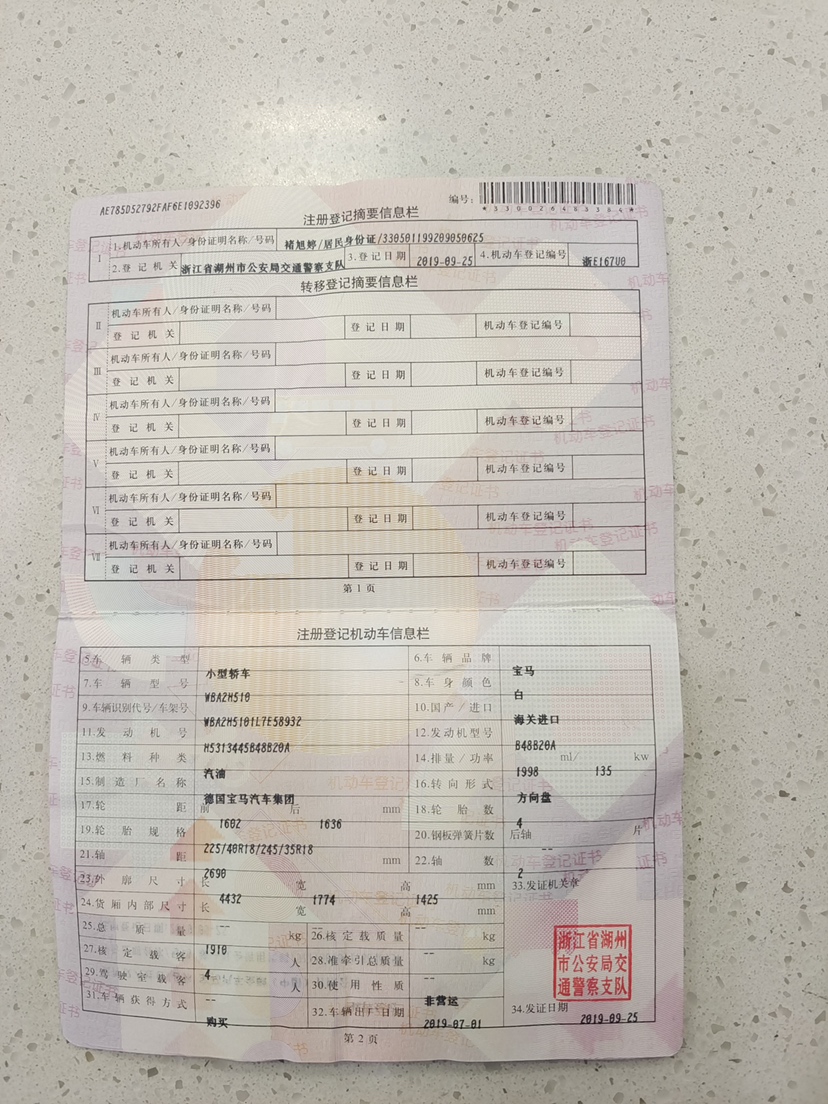 AE785D52792FAF6E1092396
编号:
*330026483384*
注册登记摘要信息栏
I
1.机动车所有人/身份证明名称/号码 褚旭婷/居民身份证/330501199209050625
2.登记机关 浙江省湖州市公安局交通警察支队 3.登记日期 2019-09-25 4.机动车登记编号 浙E167U0
转移登记摘要信息栏
II
机动车所有人/身份证明名称/号码
登记机关 登记日期 机动车登记编号
III
机动车所有人/身份证明名称/号码
登记机关 登记日期 机动车登记编号
IV
机动车所有人/身份证明名称/号码
登记机关 登记日期 机动车登记编号
V
机动车所有人/身份证明名称/号码
登记机关 登记日期 机动车登记编号
VI
机动车所有人/身份证明名称/号码
登记机关 登记日期 机动车登记编号
VII
机动车所有人/身份证明名称/号码
登记机关 登记日期 机动车登记编号
第1页
注册登记机动车信息栏
5.车辆类型 小型轿车 6.车辆品牌 宝马
7.车辆型号 WBA2H510 8.车身颜色 白
9.车辆识别代号/车架号 WBA2H5101L7E58932 10.国产/进口 海关进口
11.发动机号 H5313445B48B20A 12.发动机型号 B48B20A
13.燃料种类 汽油 14.排量/功率 1998 ml/ 135 kw
15.制造厂名称 德国宝马汽车集团 16.转向形式 方向盘
17.轮距 前 1602 后 1636 mm 18.轮胎数 4
19.轮胎规格 225/40R18/245/35R18 20.钢板弹簧片数 后轴 -- 片
21.轴距 2690 mm 22.轴数 2
23.外廓尺寸 长 4432 宽 1774 高 1425 mm 33.发证机关章
24.货厢内部尺寸 长 -- 宽 -- 高 -- mm
25.总质量 1910 kg 26.核定载质量 -- kg
27.核定载客 4 人 28.准牵引总质量 -- kg
29.驾驶室载客 -- 人 30.使用性质 非营运
31.车辆获得方式 购买 32.车辆出厂日期 2019-07-01 34.发证日期 2019-09-25
浙江省湖州
市公安局交
通警察支队
第2页